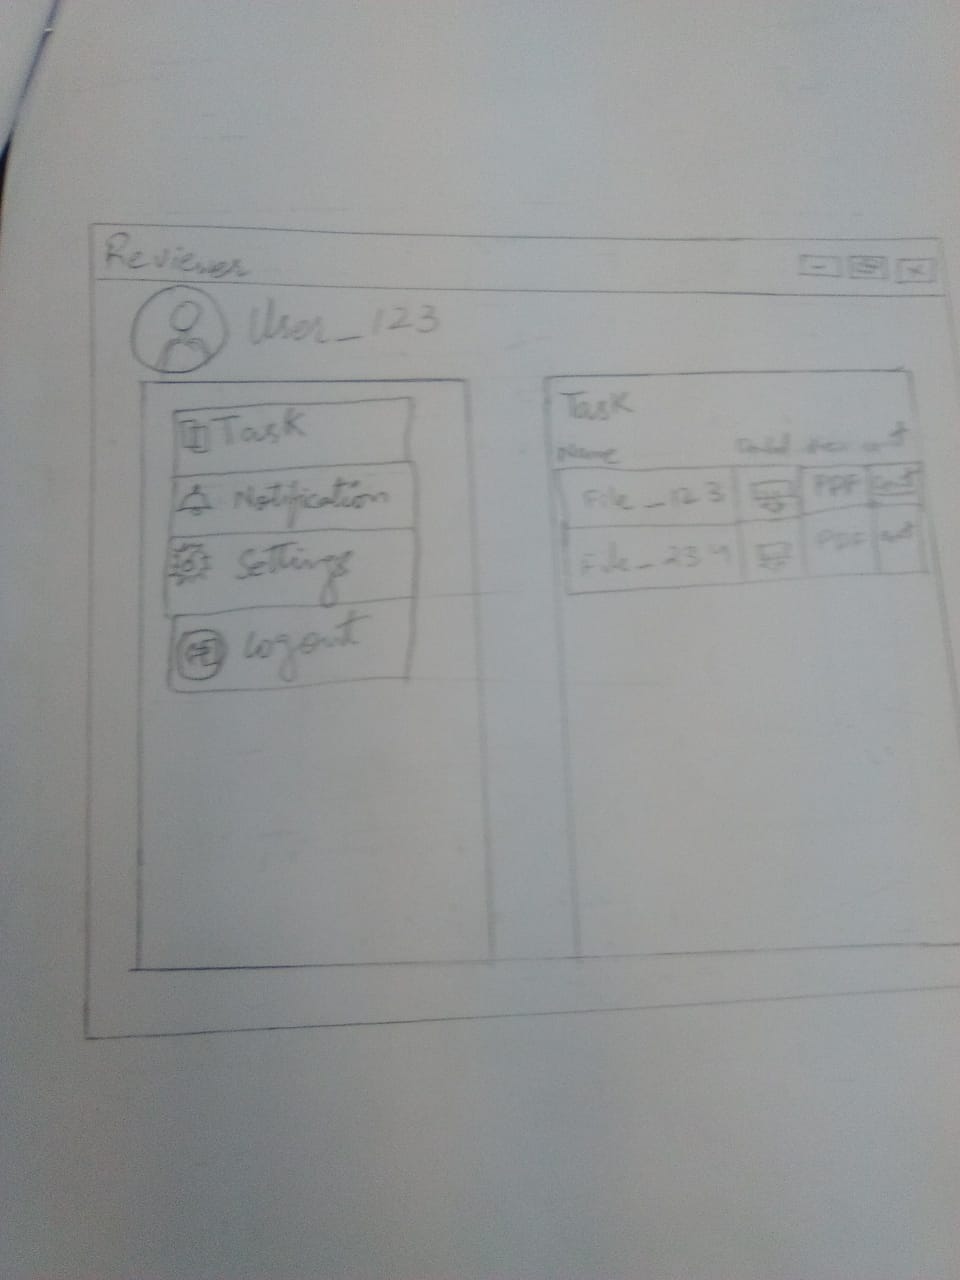 Reviewer
User_123
Task
Notification
Settings
Logout
Task
Name
File_123 PDF
File_234 PDF